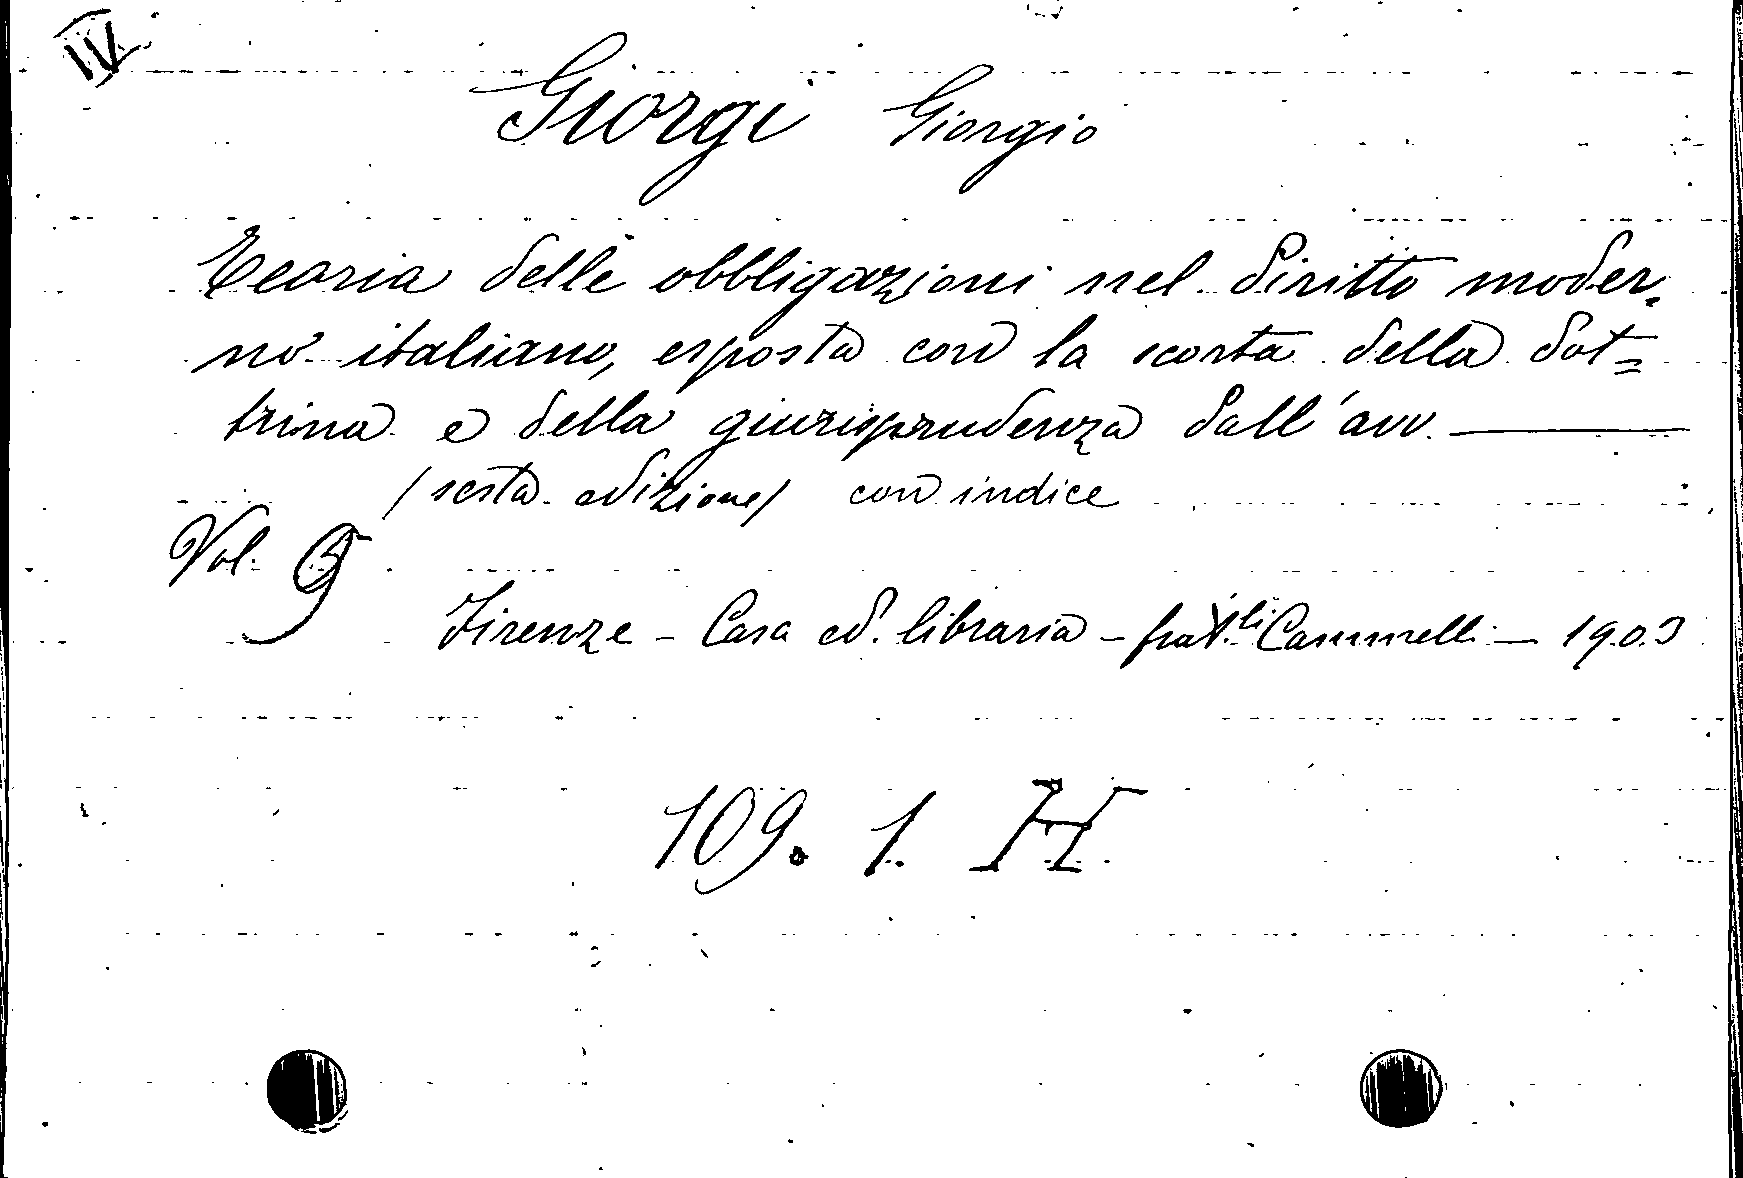 IV
Giorgi Giorgio
Teoria delle obbligazioni nel diritto moder-
no italiano, esposta con la scorta della dot=
trina e della giurisprudenza dall'avv. ———
/sesta edizione/ con indice
Vol. 9
Firenze - Casa ed. libraria - frat.lli Cammelli — 1903
109. 1. H